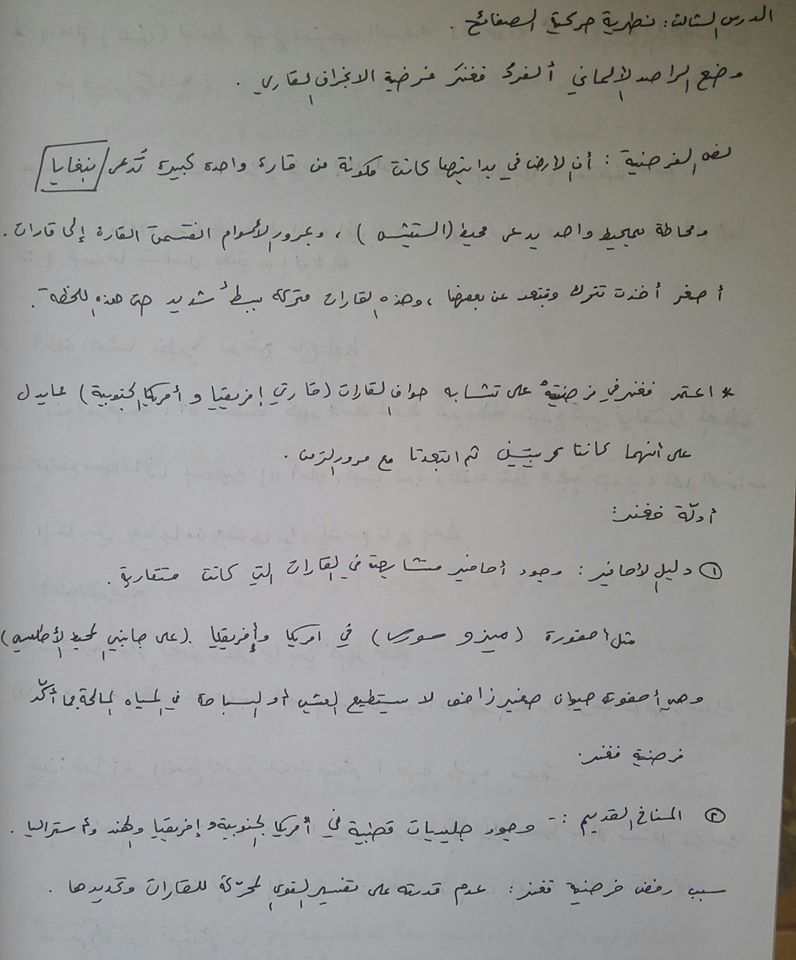 الدرس الثالث: نظرية حركية الصفائح.
وضع الراصد الألماني ألفرد فغنر فرضية الانجراف القاري.
نص الفرضية: أن الأرض في بدايتها كانت مكونة من قارة واحدة كبيرة تُدعى بنغايا
ومحاطة بمحيط واحد يدعى محيط (التيتس)، وبمرور الأعوام انقسمت القارة إلى قارات.
أصغر أخذت تتحرك وتبتعد عن بعضها، وهذه القارات متحركة ببطء شديد حتى هذه اللحظة.
* اعتمد فغنر في فرضيته على تشابه حواف القارات (قارتي إفريقيا و أمريكا الجنوبية) مما يدل
على أنهما كانتا قريبتين ثم ابتعدتا مع مرور الزمن.
أدلة فغنر:
① دليل الأحافير: وجود أحافير متشابهة في القارات التي كانت متقاربة.
مثل أحفورة (ميزو سورس) في امريكا وإفريقيا. (على جانبي المحيط الأطلسي)
وهي أحفورة حيوان صغير زاحف لا يستطيع العيش أو السباحة في المياه المالحة مما أكّد
فرضية فغنر.
② المناخ القديم: - وجود جليديات قطبية في أمريكا الجنوبية و إفريقيا والهند وأستراليا.
سبب رفض فرضية فغنر: عدم قدرته على تفسير القوى المحركة للقارات وتحديدها.